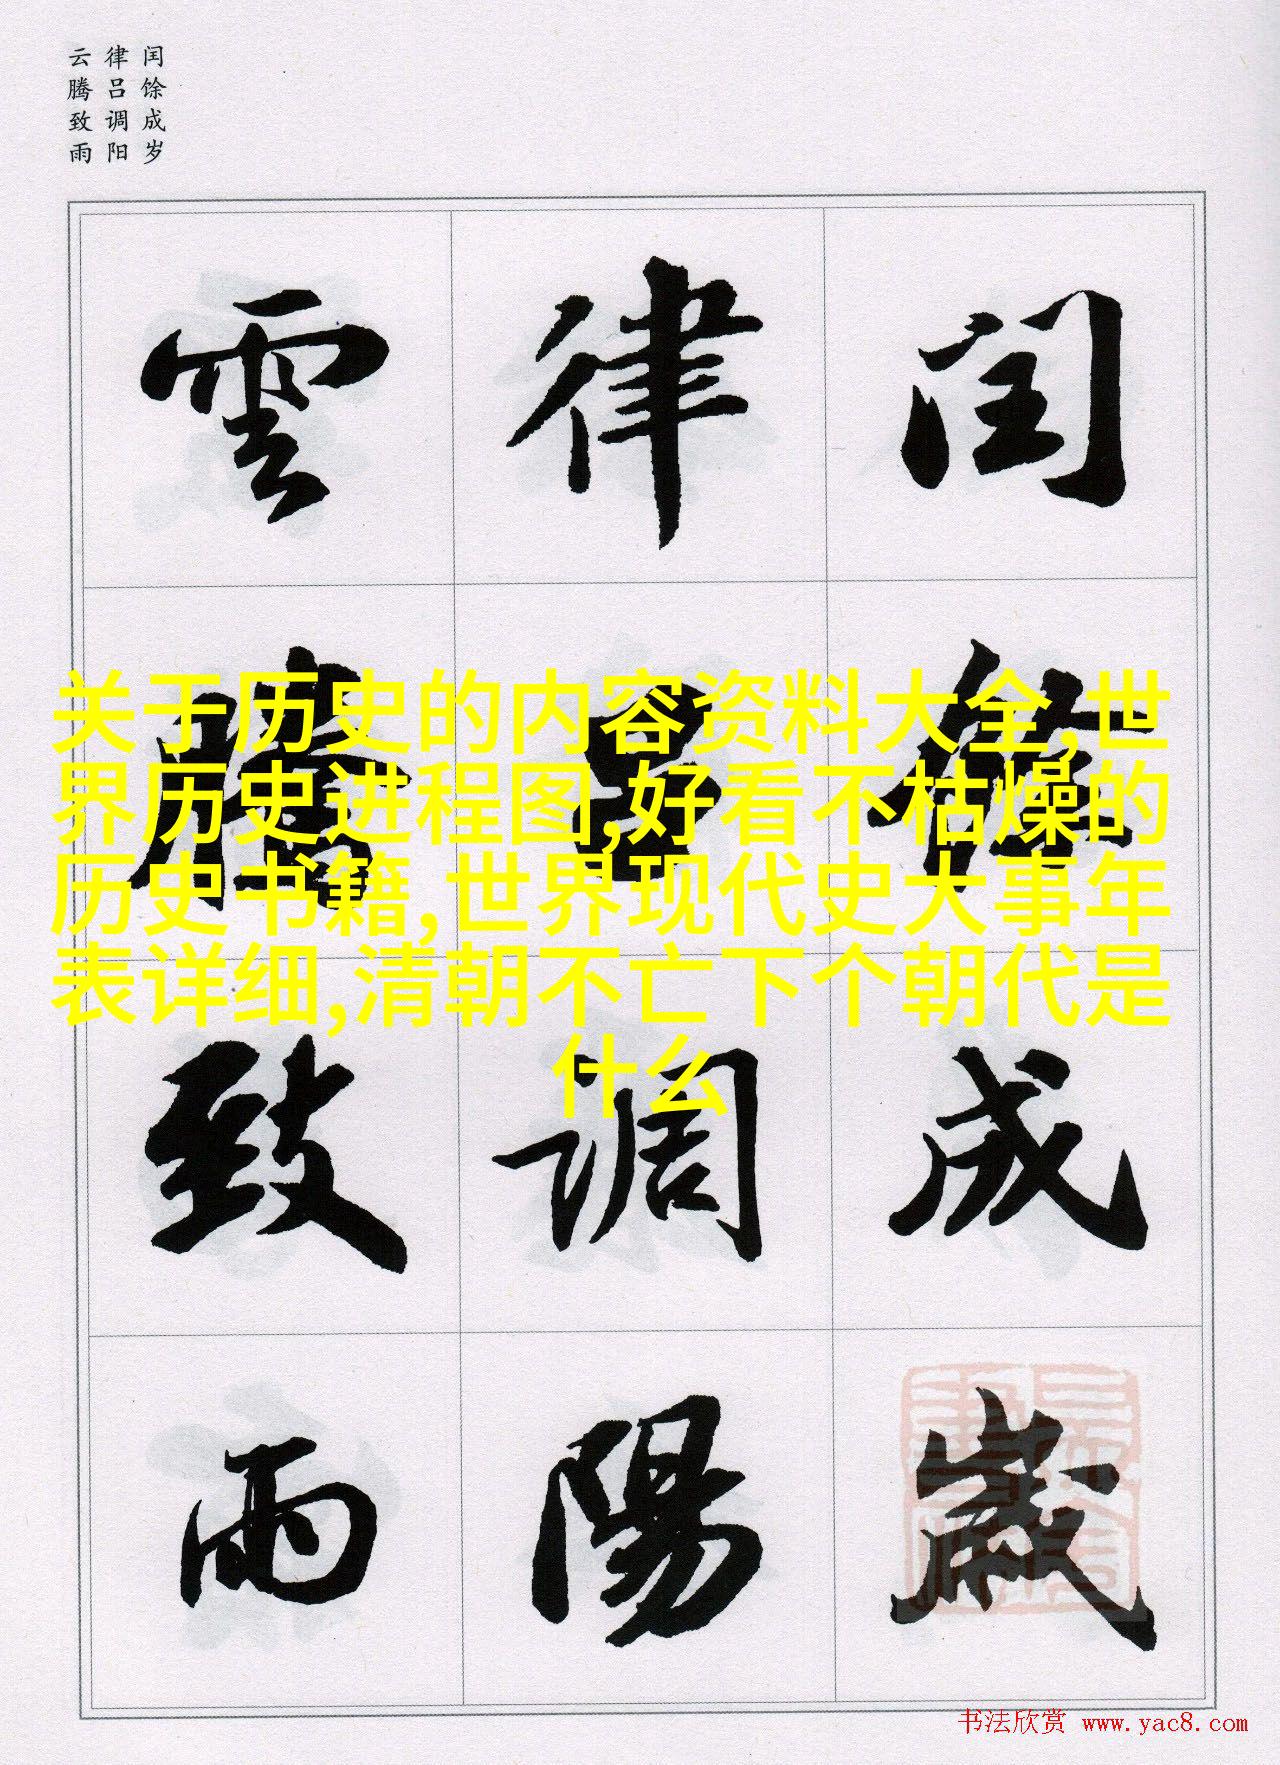 闰馀成岁
律吕调阳
云腾致雨
闰馀成歲
律吕調陽
雲騰致雨
关于历史的内容资料大全,世
界历史进程图,好看不枯燥的
历史书籍,世界现代史大事年
表详细,清朝不亡下个朝代是
什么
书法欣赏 www.yac8.com